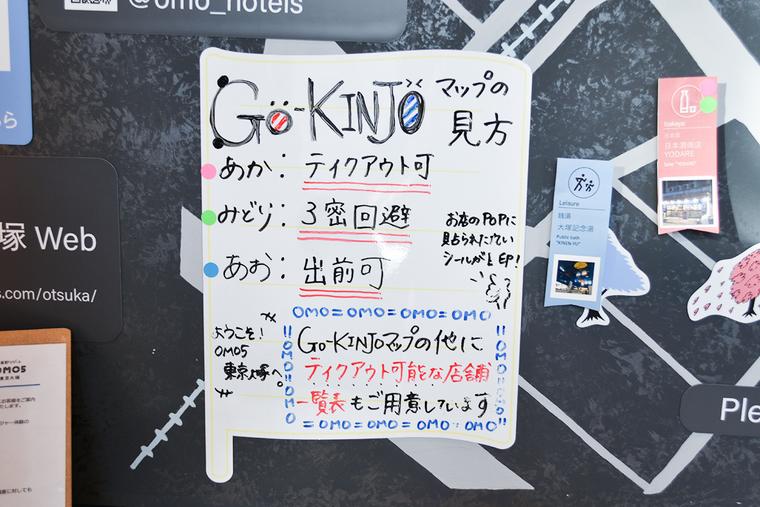 @omo_hotels
Go-KINJO マップの
見方
あか: テイクアウト可
みどり: 3密回避
あお: 出前可
お店のPOPに
見占られにてい
シールがヒEP!
OMO=OMO=OMO=OMO=OMO
ようこそ!
OMO5
東京大塚へ。
Go-KINJOマップの他に
テイクアウト可能な店舗
一覧表もご用意しています
=OMO=OMO=OMO=OMO=
塚 Web
s.com/otsuka/
OMO5
東京大塚
Leisure
銭湯
大塚記念湯
Public bath
"KINEN-YU"
Izakaya
居酒屋
日本酒商店
YODARE
Sake "YODARE"
Ple